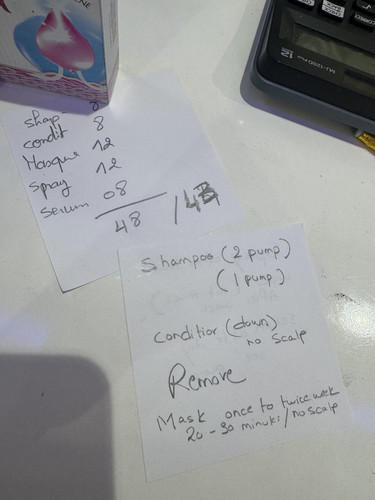 NE
CORRECT
12
MJ-120D Plus
shap 8
condit 8
Masque 12
spray 12
serum 08
48 / 43
Shampoo (2 pump)
(1 pump)
Condition (down)
no scalp
Remove
Mask once to twice week
20 - 30 minuts / no scalp